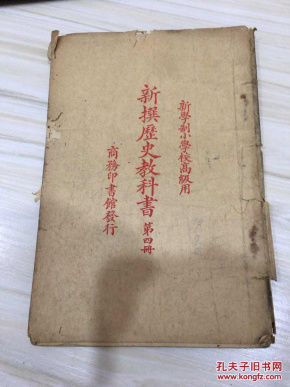 新學制小學校高級用
新撰歷史教科書 第四冊
商務印書館發行
孔夫子旧书网
www.kongfz.com